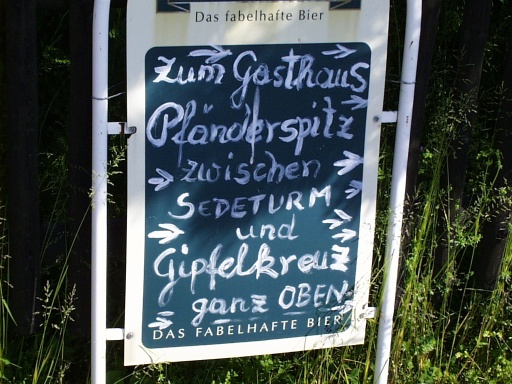 Das fabelhafte Bier
zum Gasthaus
Pfänderspitz
zwischen
SEDETURM
und
Gipfelkreuz
ganz OBEN
DAS FABELHAFTE BIER